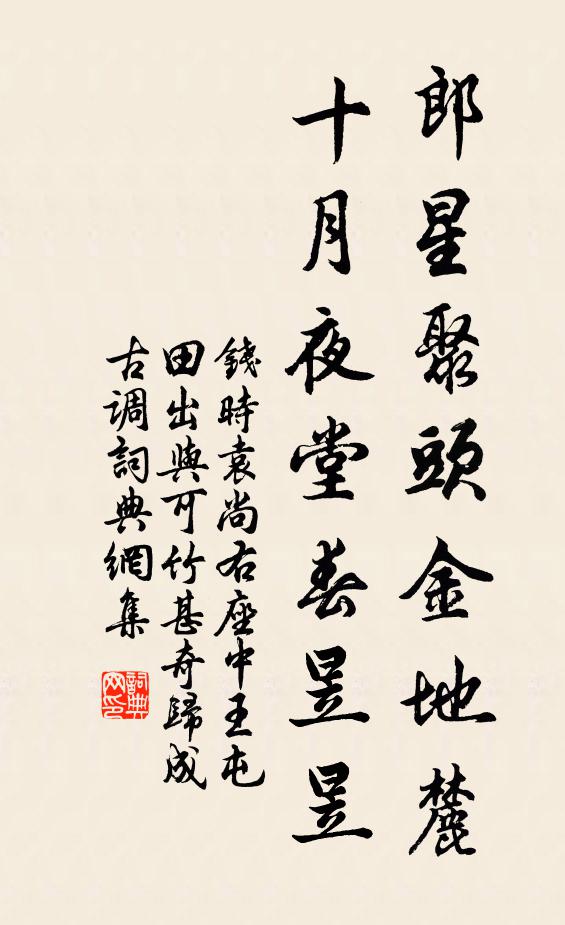 郎星聚頭金地麓
十月夜堂春昱昱
錢時袁尚右座中王屯
田出與可竹甚奇歸成
古調詞典網集
詞典網印